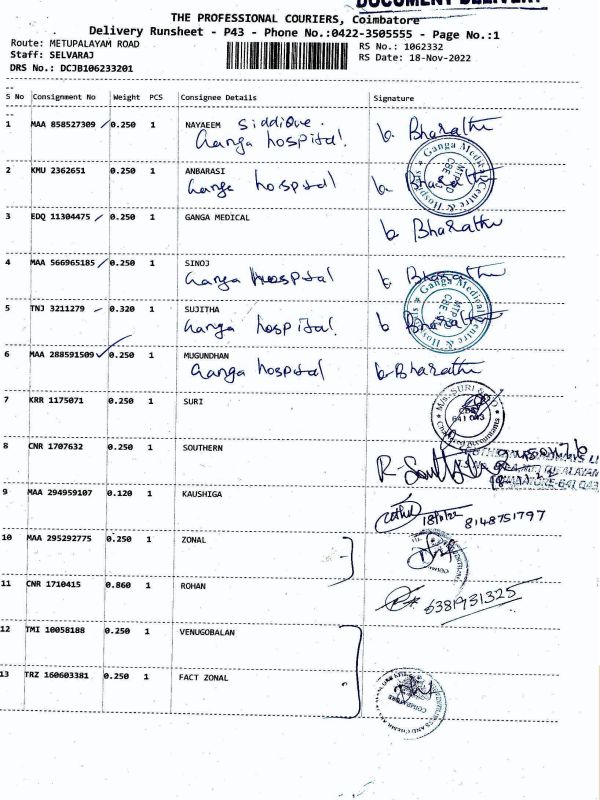 DOCUMENT DELIVERY
THE PROFESSIONAL COURIERS, Coimbatore
Delivery Runsheet - P43 - Phone No.:0422-3505555 - Page No.:1
Route: METUPALAYAM ROAD
Staff: SELVARAJ
DRS No.: DCJB106233201
RS No.: 1062332
RS Date: 18-Nov-2022
S No Consignment No Weight PCS Consignee Details Signature
1 MAA 858527309 0.250 1 NAYAEEM Siddique. b. Bharathi
Ganga hospital.
2 KMU 2362651 0.250 1 ANBARASI
Ganga hospital b. Bharathi
Ganga Medical Centre & Hospitals
MTP RD
CBE
3 EDQ 11304475 0.250 1 GANGA MEDICAL b Bharathi
4 MAA 566965185 0.250 1 SINOJ
Ganga hospital b Bharathi
Ganga Medical Centre & Hospitals
MTP RD
CBE
5 TNJ 3211279 0.320 1 SUJITHA
Ganga hospital. b Bharathi
6 MAA 288591509 0.250 1 MUGUNDHAN
Ganga hospital b-Bharathi
7 KRR 1175071 0.250 1 SURI
M/s. SURI & CO
641 043
Chartered Accountants
8 CNR 1707632 0.250 1 SOUTHERN
COIMBATORE-641 043
9 MAA 294959107 0.120 1 KAUSHIGA
18/11/22 8148751797
10 MAA 295292775 0.250 1 ZONAL
11 CNR 1710415 0.860 1 ROHAN
6381931325
12 TMI 10058188 0.250 1 VENUGOBALAN
13 TRZ 160603381 0.250 1 FACT ZONAL
COIMBATORE